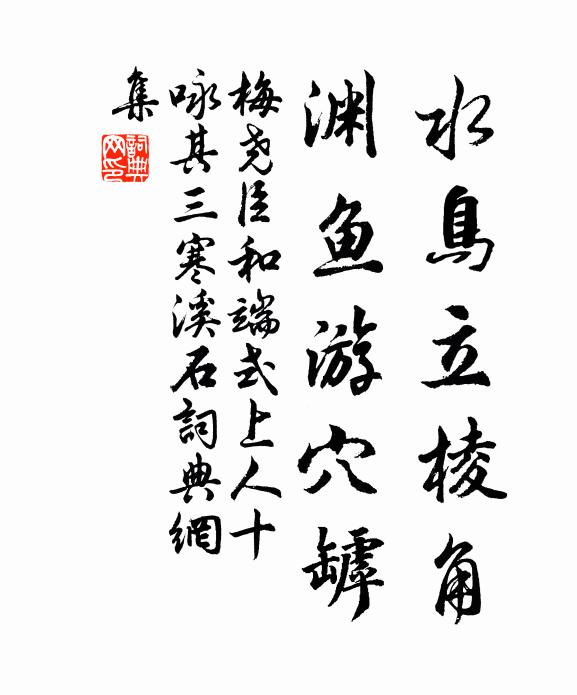 水鳥立棱角
渊鱼游穴罅
梅尧臣和端式上人十
咏其三寒溪石詞典網
集
詞典
网印